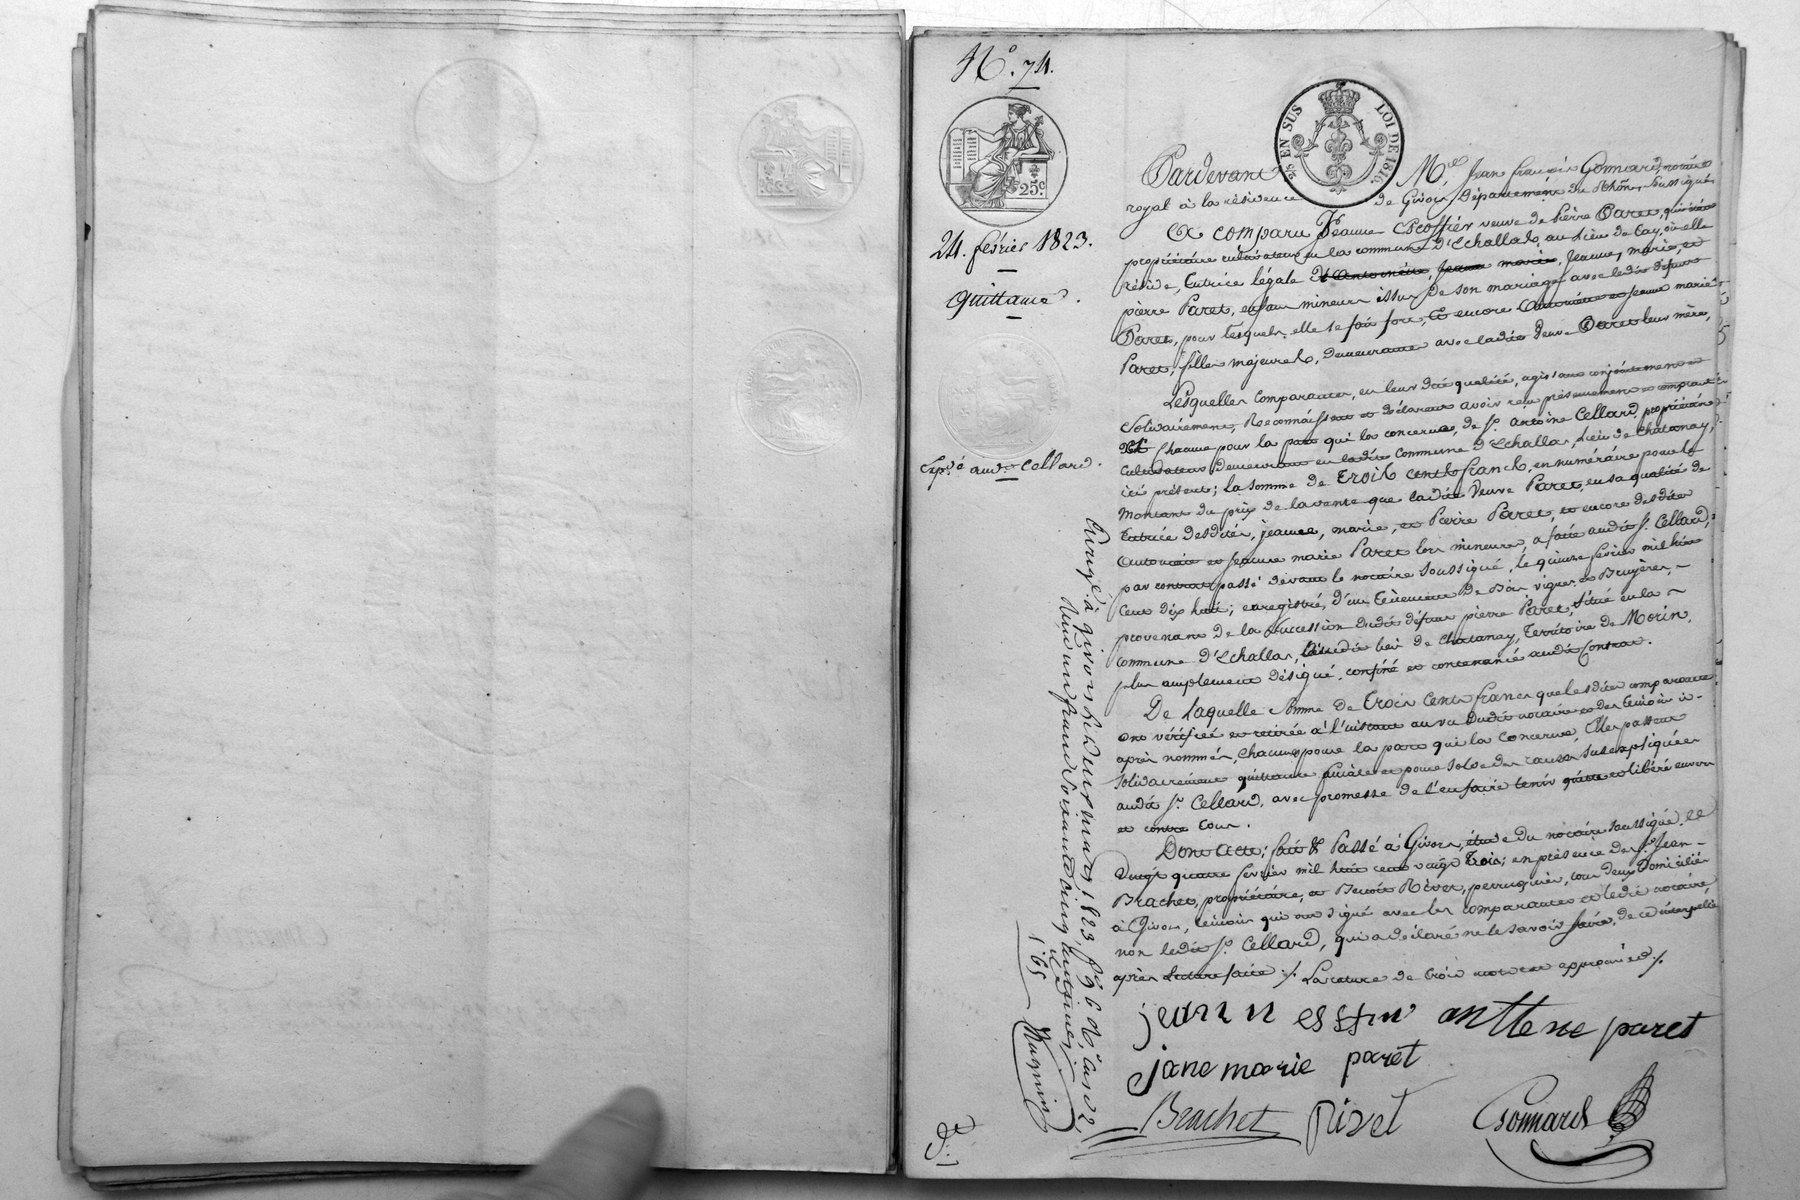 N.° 74.
25 EN SUS LOI DE 1816.
25.c
24. février 1823.
Quittance.
Exp.é aud. Cellard.
Pardevant M.e Jean François Gonnard, notaire
royal à la résidence de Givors, Département du Rhône, Soussigné,
A comparu Jeanne Escoffier veuve de Pierre Paret,
propriétaire cultivateur en la commune d'Echallas, au Lieu de Cay, où elle
réside, tutrice légale d'Antoinette, Jeanne marie, Jeanne, marie et
pierre Paret, enfans mineurs issus de son mariage avec ledit défunt
Paret, pour lesquels elle se fait fort, et encore Antoinette et Jeanne marie
Paret, filles majeures, demeurante avec ladite Veuve Paret leur mère,
Lesquelles Comparantes, en leur dite qualité, agissant conjointement et
Solidairement, Reconnaissent et déclarent avoir reçu présentement et comptant
et Chacune pour la part qui les concerne, de S.r Antoine Cellard, propriétaire
Cultivateur demeurant en ladite Commune d'Echallas, Lieu de Chatanay,
ici présent; la somme de Trois cents francs, en numéraire pour le
Montant du prix de la vente que ladite Veuve Paret, en sa qualité de
tutrice desdites, jeanne, marie, et Pierre Paret, et encore desdites
Antoinette et Jeanne marie Paret lors mineures, a faite audit S.r Cellard,
par contrat passé devant le notaire Soussigné, le quinze février mil huit
Cent dix huit; enregistré, d'un tènement de Bois, vignes, et Bruyères,
provenant de la Succession dudit défunt pierre Paret, Situé en la
commune d'Echallas, susdit lieu de Chatanay, territoire de Morin,
plus amplement désigné, confiné et contenancé audit Contrat.
De laquelle Somme de trois Cents francs que lesdites comparantes
ont vérifiée et retirée à l'instant au vu dudit notaire et des témoins ci-
après nommés, chacune pour la part qui la concerne, Elles passent
Solidairement quittance finale et pour solde des causes susexpliquées
audit S.r Cellard, avec promesse de l'en faire tenir quitte et libéré envers
et contre tous.
Dont Acte; fait & Passé à Givors, étude du notaire soussigné, le
Vingt quatre février mil huit cent vingt Trois; en présence de S.r Jean
Brachet, propriétaire, et Benoît Rivet, perruquier, tous deux Domiciliés
à Givors, témoins qui ont signé avec les comparantes et ledit notaire,
non ledit S.r Cellard, qui a déclaré ne le savoir faire, de ce interpellé
après Lecture faite ./. La rature de trois mots est approuvée ./.
jeann esstfier anttene paret
jane marie paret
Brachet Rivet Gonnard
Enregé à givors le deux mars 1823 f.° 96 R.° cases 2
Reçu un franc soixante cinq centimes
1.65 Magnin